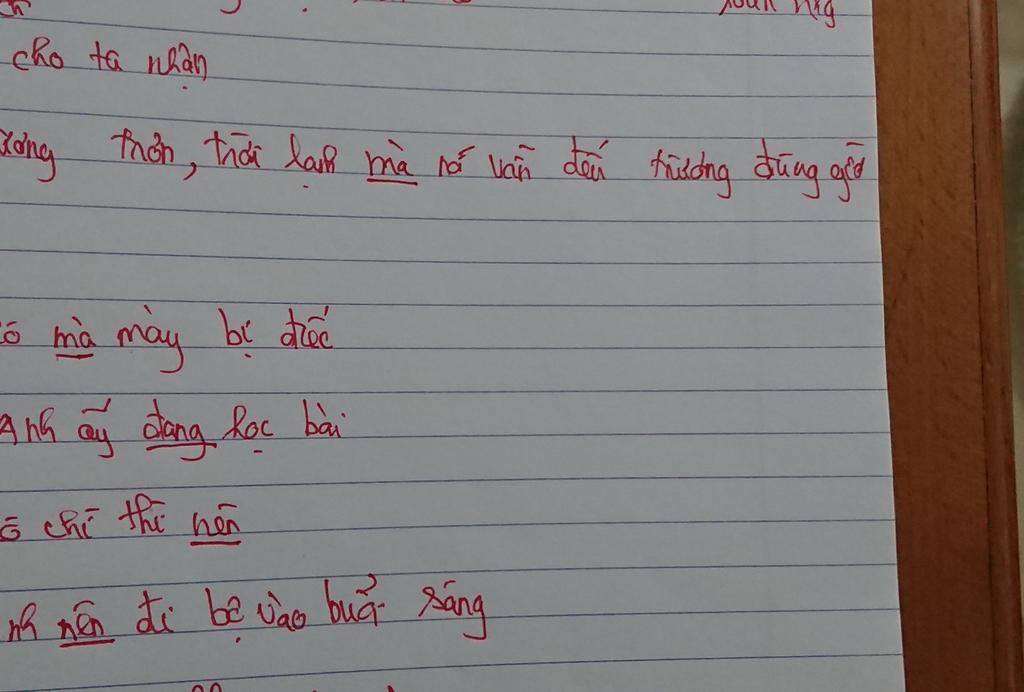 cho ta nhận
thôn, trời lạnh mà nó vẫn đến trường đúng giờ
mà mày bị điếc
Anh ấy đang học bài
chí thì nên
nên đi bộ vào buổi sáng